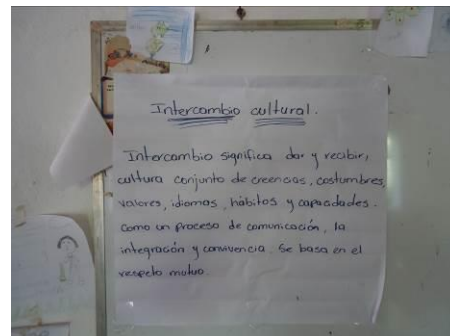 Intercambio cultural.
Intercambio significa dar y recibir,
cultura conjunto de creencias, costumbres,
valores, idiomas, hábitos y capacidades.
como un proceso de comunicación, la
integración y convivencia. Se basa en el
respeto mutuo